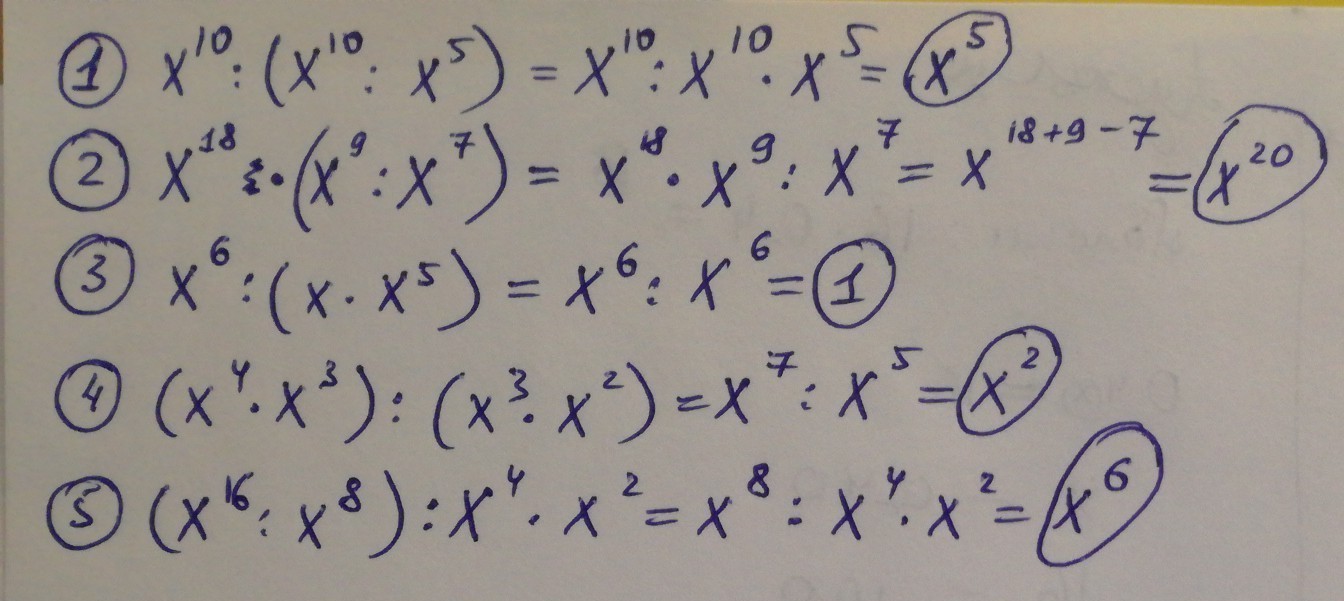 ① x¹⁰ : (x¹⁰ : x⁵) = x¹⁰ : x¹⁰ · x⁵ = x⁵
② x¹⁸ · (x⁹ : x⁷) = x¹⁸ · x⁹ : x⁷ = x¹⁸⁺⁹⁻⁷ = x²⁰
③ x⁶ : (x · x⁵) = x⁶ : x⁶ = 1
④ (x⁴ · x³) : (x³ · x²) = x⁷ : x⁵ = x²
⑤ (x¹⁶ : x⁸) : x⁴ · x² = x⁸ : x⁴ · x² = x⁶